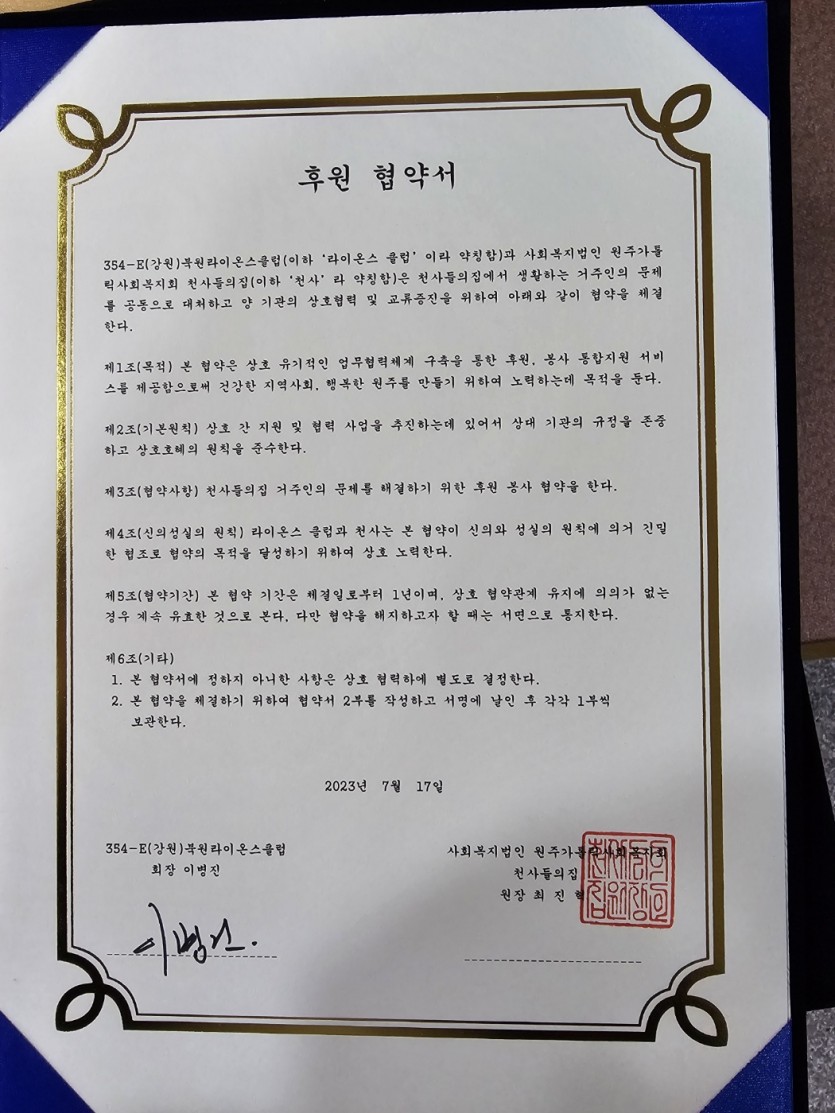 후원 협약서
354-E(강원)북원라이온스클럽(이하 '라이온스 클럽' 이라 약칭함)과 사회복지법인 원주가톨
릭사회복지회 천사들의집(이하 '천사' 라 약칭함)은 천사들의집에서 생활하는 거주인의 문제
를 공동으로 대처하고 양 기관의 상호협력 및 교류증진을 위하여 아래와 같이 협약을 체결
한다.
제1조(목적) 본 협약은 상호 유기적인 업무협력체계 구축을 통한 후원, 봉사 통합지원 서비
스를 제공함으로써 건강한 지역사회, 행복한 원주를 만들기 위하여 노력하는데 목적을 둔다.
제2조(기본원칙) 상호 간 지원 및 협력 사업을 추진하는데 있어서 상대 기관의 규정을 존중
하고 상호호혜의 원칙을 준수한다.
제3조(협약사항) 천사들의집 거주인의 문제를 해결하기 위한 후원 봉사 협약을 한다.
제4조(신의성실의 원칙) 라이온스 클럽과 천사는 본 협약이 신의와 성실의 원칙에 의거 긴밀
한 협조로 협약의 목적을 달성하기 위하여 상호 노력한다.
제5조(협약기간) 본 협약 기간은 체결일로부터 1년이며, 상호 협약관계 유지에 의의가 없는
경우 계속 유효한 것으로 본다. 다만 협약을 해지하고자 할 때는 서면으로 통지한다.
제6조(기타)
1. 본 협약서에 정하지 아니한 사항은 상호 협력하에 별도로 결정한다.
2. 본 협약을 체결하기 위하여 협약서 2부를 작성하고 서명에 날인 후 각각 1부씩
보관한다.
2023년 7월 17일
354-E(강원)북원라이온스클럽
회장 이병진
사회복지법인 원주가톨릭사회복지회
천사들의집
원장 최 진 혁
이병진.